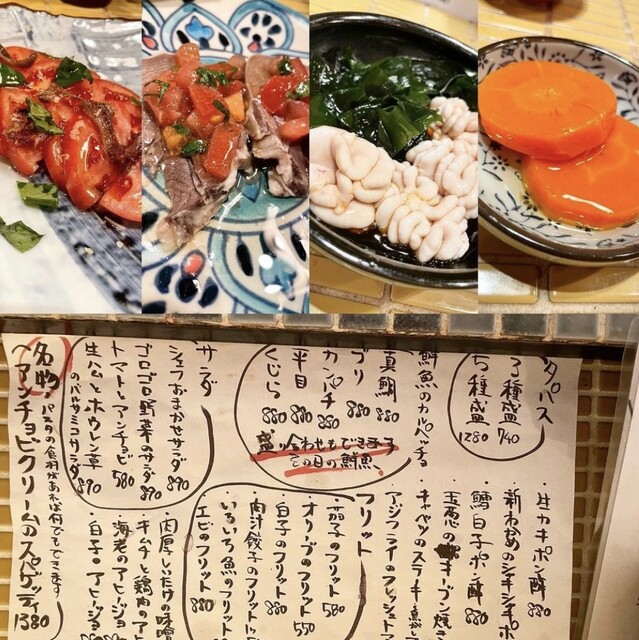 タパス
3種盛 740
5種盛 1280
鮮魚のカルパッチョ
真鯛 880
ブリ 880
カンパチ 880
平目 880
くじら 880
盛り合わせもできます
この日の鮮魚
サラダ
シェフおまかせサラダ 890
ゴロゴロ野菜のサラダ 890
トマトとアンチョビ 580
生ハムとホウレン草
のバルサミコサラダ 890
名物!
パスタの食材があれば何でもできます
アンチョビクリームのスパゲッティ 1380
・生カキポン酢 880
・新わかめのシャキシャキポ
・鱈白子ポン酢 880
・玉葱のオーブン焼き
・キャベツのステーキ
アジフライのフレッシュトマ
フリット
・茄子のフリット 580
・オリーブのフリット 550
・白子のフリット 880
・肉汁餃子のフリット
・いろいろ魚のフリット
・エビのフリット 880
肉厚しいたけの味噌
・キムチと鶏肉のアヒ
・海老のアヒージョ
・白子のアヒージョ